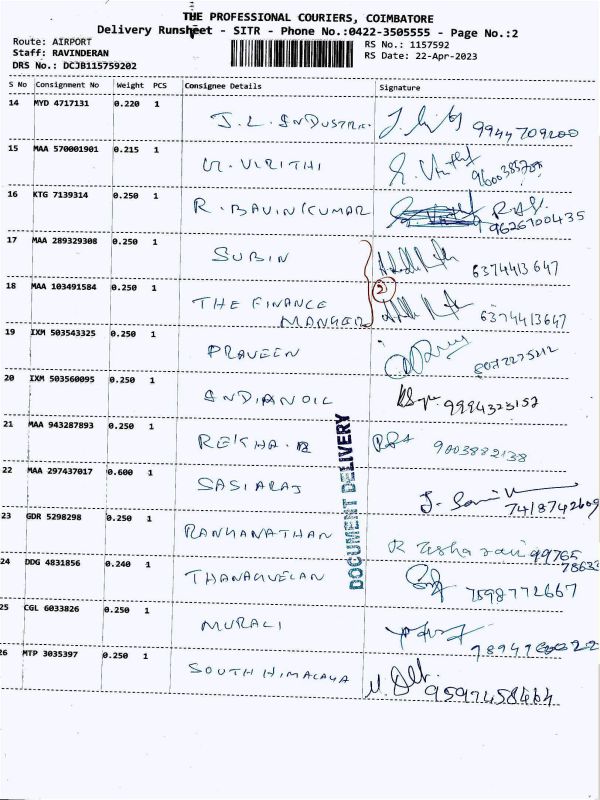 THE PROFESSIONAL COURIERS, COIMBATORE
Delivery Runsheet - SITR - Phone No.:0422-3505555 - Page No.:2
Route: AIRPORT
RS No.: 1157592
Staff: RAVINDERAN
RS Date: 22-Apr-2023
DRS No.: DCJB115759202
S No Consignment No Weight PCS Consignee Details Signature
14 MYD 4717131 0.220 1
J. L. INDUSTRI 9944709200
15 MAA 570001901 0.215 1
VIRITHI
16 KTG 7139314 0.250 1
R. BAVIN KUMAR 9626700435
17 MAA 289329308 0.250 1
SUBIN 6374413647
2
18 MAA 103491584 0.250 1
THE FINANCE
MANGER 6374413647
19 IXM 503543325 0.250 1
PRAVEEN
20 IXM 503560095 0.250 1
INDIAN OIL 9994323152
21 MAA 943287893 0.250 1
REKHA. R 9003882138
22 MAA 297437017 0.600 1
SASIARAJ 7418742609
23 GDR 5298298 0.250 1
RANHANATHAN R Usha rani 99765
78633
24 DDG 4831856 0.240 1
THANAGUELAN 7598772667
25 CGL 6033826 0.250 1
MURALI
26 MTP 3035397 0.250 1
SOUTH HIMALAYA 9597458464
DOCUMENT DELIVERY